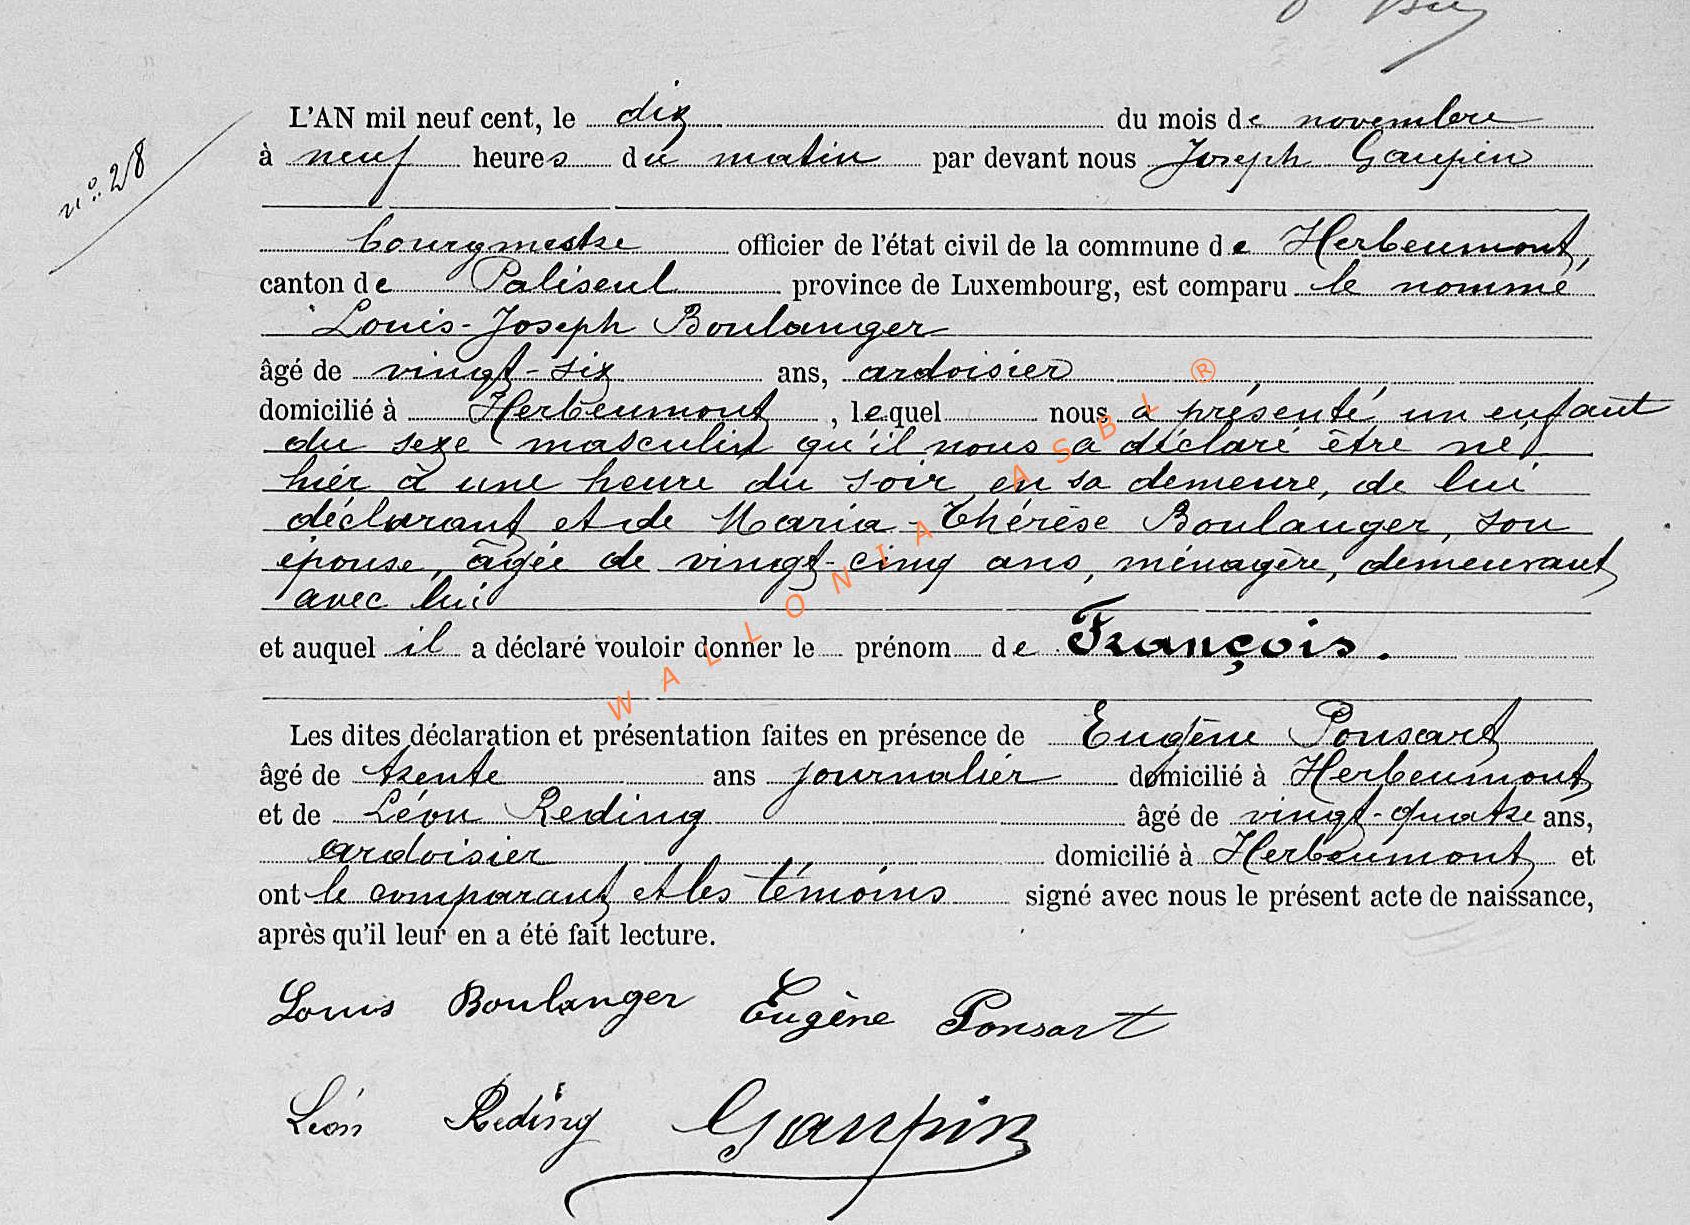 n°. 28
L'AN mil neuf cent, le dix du mois de novembre
à neuf heures du matin par devant nous Joseph Gaupin
bourgmestre officier de l'état civil de la commune de Herbeumont,
canton de Paliseul province de Luxembourg, est comparu le nommé
Louis-Joseph Boulanger
âgé de vingt-six ans, ardoisier,
domicilié à Herbeumont, lequel nous a présenté un enfant
du sexe masculin qu'il nous a déclaré être né
hier à une heure du soir en sa demeure, de lui
déclarant et de Maria Thérèse Boulanger, son
épouse, âgée de vingt-cinq ans, ménagère, demeurant
avec lui
et auquel il a déclaré vouloir donner le prénom de François.
Les dites déclaration et présentation faites en présence de Eugène Ponsart
âgé de trente ans journalier domicilié à Herbeumont,
et de Léon Reding âgé de vingt-quatre ans,
ardoisier domicilié à Herbeumont et
ont le comparant et les témoins signé avec nous le présent acte de naissance,
après qu'il leur en a été fait lecture.
Louis Boulanger Eugène Ponsart
Léon Reding Gaupin
WALLONIA ASBL ®